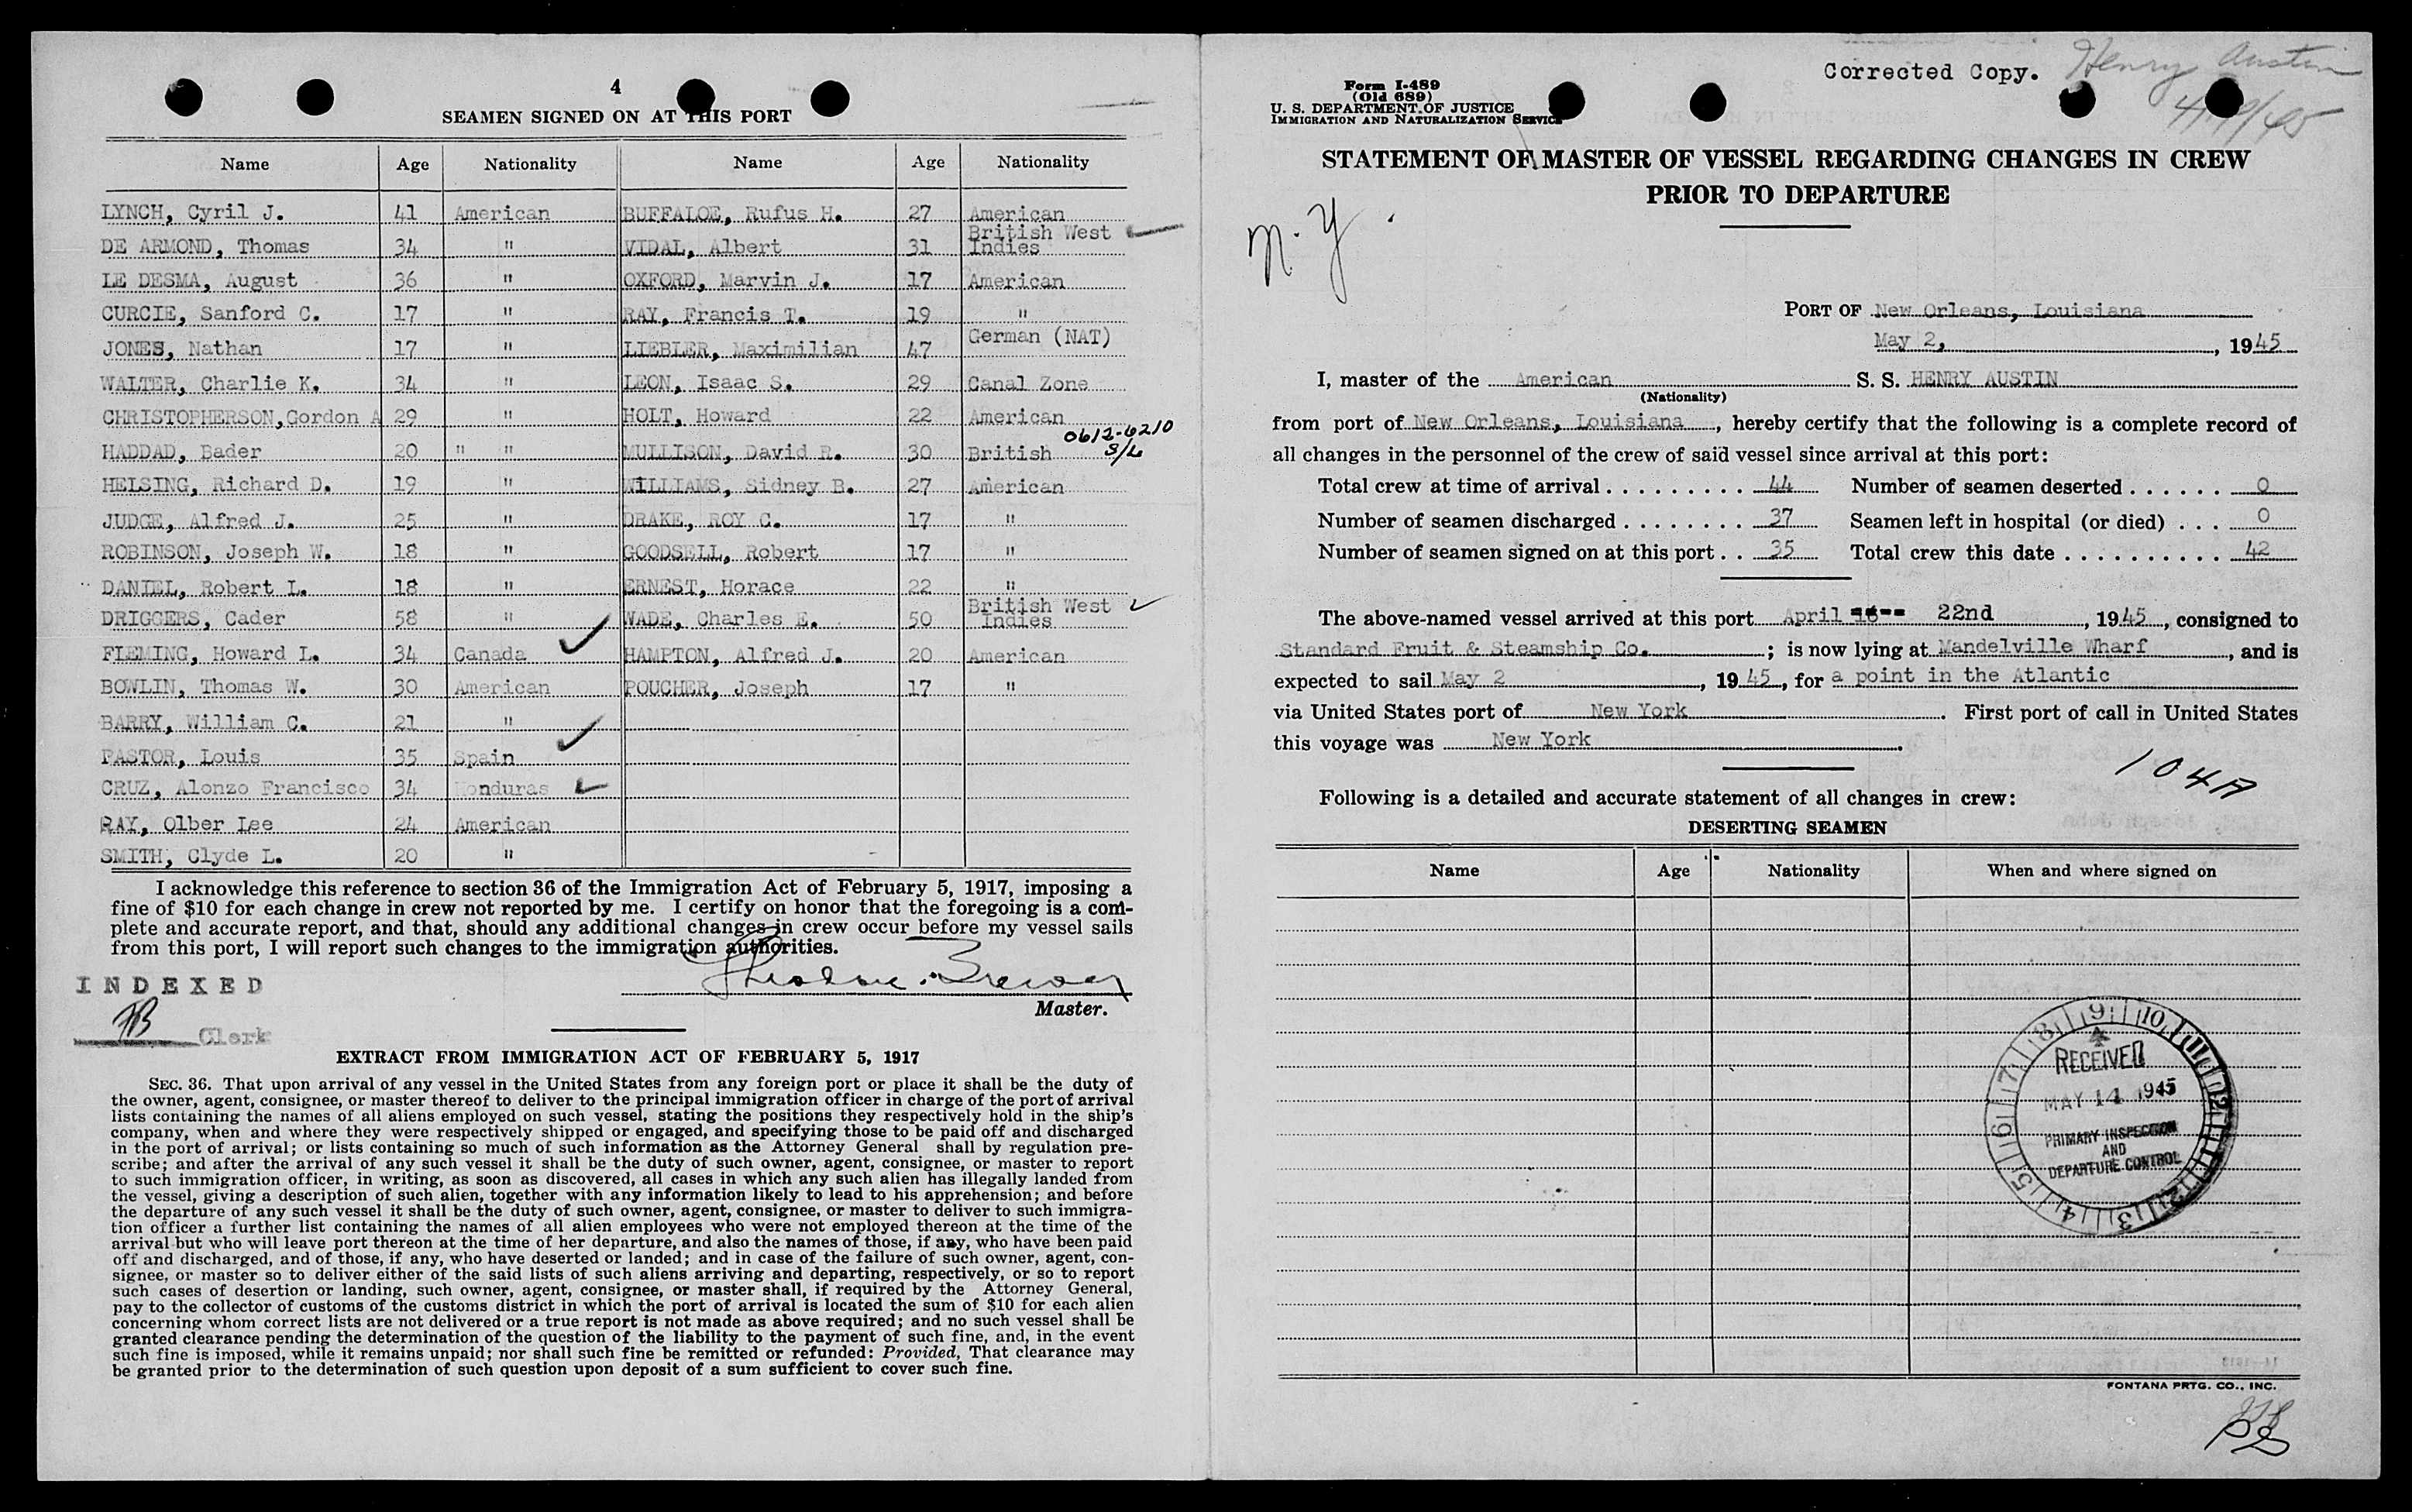 4
SEAMEN SIGNED ON AT THIS PORT
Name Age Nationality Name Age Nationality
LYNCH, Cyril J. 41 American BUFFALOE, Rufus H. 27 American
DE ARMOND, Thomas 34 " VIDAL, Albert 31 British West Indies
LE DESMA, August 36 " OXFORD, Marvin J. 17 American
CURCIE, Sanford C. 17 " RAY, Francis T. 19 "
JONES, Nathan 17 " LIEBLER, Maximilian 47 German (NAT)
WALTER, Charlie K. 34 " LEON, Isaac S. 29 Canal Zone
CHRISTOPHERSON,Gordon A 29 " HOLT, Howard 22 American
HADDAD, Bader 20 " " MULLISON, David R. 30 British 0612-6210 S/L
HELSING, Richard D. 19 " WILLIAMS, Sidney B. 27 American
JUDGE, Alfred J. 25 " DRAKE, ROY C. 17 "
ROBINSON, Joseph W. 18 " GOODSELL, Robert 17 "
DANIEL, Robert L. 18 " ERNEST, Horace 22 "
DRIGGERS, Cader 58 " WADE, Charles E. 50 British West Indies
FLEMING, Howard L. 34 Canada HAMPTON, Alfred J. 20 American
BOWLIN, Thomas W. 30 American POUCHER, Joseph 17 "
BARRY, William C. 21 "
PASTOR, Louis 35 Spain
CRUZ, Alonzo Francisco 34 Honduras
RAY, Olber Lee 24 American
SMITH, Clyde L. 20 "
I acknowledge this reference to section 36 of the Immigration Act of February 5, 1917, imposing a
fine of $10 for each change in crew not reported by me. I certify on honor that the foregoing is a com-
plete and accurate report, and that, should any additional changes in crew occur before my vessel sails
from this port, I will report such changes to the immigration authorities.
INDEXED
Brewer
Master.
Clerk
EXTRACT FROM IMMIGRATION ACT OF FEBRUARY 5, 1917
SEC. 36. That upon arrival of any vessel in the United States from any foreign port or place it shall be the duty of
the owner, agent, consignee, or master thereof to deliver to the principal immigration officer in charge of the port of arrival
lists containing the names of all aliens employed on such vessel, stating the positions they respectively hold in the ship's
company, when and where they were respectively shipped or engaged, and specifying those to be paid off and discharged
in the port of arrival; or lists containing so much of such information as the Attorney General shall by regulation pre-
scribe; and after the arrival of any such vessel it shall be the duty of such owner, agent, consignee, or master to report
to such immigration officer, in writing, as soon as discovered, all cases in which any such alien has illegally landed from
the vessel, giving a description of such alien, together with any information likely to lead to his apprehension; and before
the departure of any such vessel it shall be the duty of such owner, agent, consignee, or master to deliver to such immigra-
tion officer a further list containing the names of all alien employees who were not employed thereon at the time of the
arrival but who will leave port thereon at the time of her departure, and also the names of those, if any, who have been paid
off and discharged, and of those, if any, who have deserted or landed; and in case of the failure of such owner, agent, con-
signee, or master so to deliver either of the said lists of such aliens arriving and departing, respectively, or so to report
such cases of desertion or landing, such owner, agent, consignee, or master shall, if required by the Attorney General,
pay to the collector of customs of the customs district in which the port of arrival is located the sum of $10 for each alien
concerning whom correct lists are not delivered or a true report is not made as above required; and no such vessel shall be
granted clearance pending the determination of the question of the liability to the payment of such fine, and, in the event
such fine is imposed, while it remains unpaid; nor shall such fine be remitted or refunded: Provided, That clearance may
be granted prior to the determination of such question upon deposit of a sum sufficient to cover such fine.
Corrected Copy. Henry Austin
Form I-489
(Old 689)
U. S. DEPARTMENT OF JUSTICE
IMMIGRATION AND NATURALIZATION SERVICE
STATEMENT OF MASTER OF VESSEL REGARDING CHANGES IN CREW
PRIOR TO DEPARTURE
N.Y.
PORT OF New Orleans, Louisiana
May 2, , 1945
I, master of the American S. S. HENRY AUSTIN
(Nationality)
from port of New Orleans, Louisiana, hereby certify that the following is a complete record of
all changes in the personnel of the crew of said vessel since arrival at this port:
Total crew at time of arrival . . . . . . . . . 44 Number of seamen deserted . . . . . . 0
Number of seamen discharged . . . . . . . . 37 Seamen left in hospital (or died) . . . 0
Number of seamen signed on at this port . . 35 Total crew this date . . . . . . . . . . 42
The above-named vessel arrived at this port April 22nd , 1945, consigned to
Standard Fruit & Steamship Co. ; is now lying at Mandelville Wharf , and is
expected to sail May 2 , 1945, for a point in the Atlantic
via United States port of New York . First port of call in United States
this voyage was New York .
104A
Following is a detailed and accurate statement of all changes in crew:
DESERTING SEAMEN
Name Age Nationality When and where signed on
RECEIVED
MAY 14 1945
PRIMARY INSPECTION
AND
DEPARTURE CONTROL
9 10 11 12 1 2 3 4 5 6 7 8
FONTANA PRTG. CO., INC.